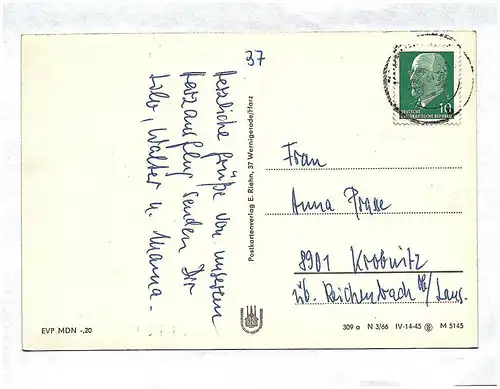 37
Herzliche Grüße von unserem
Harzausflug senden Dir
Walter u. Mama.
Postkartenverlag E. Riehn, 37 Wernigerode/Harz
EVP MDN -,20
10
DEUTSCHE
DEMOKRATISCHE REPUBLIK
Frau
Anna
8901 Krobnitz
üb. Reichenbach OL/Laus.
309 a N 3/66 IV-14-45 M 5145